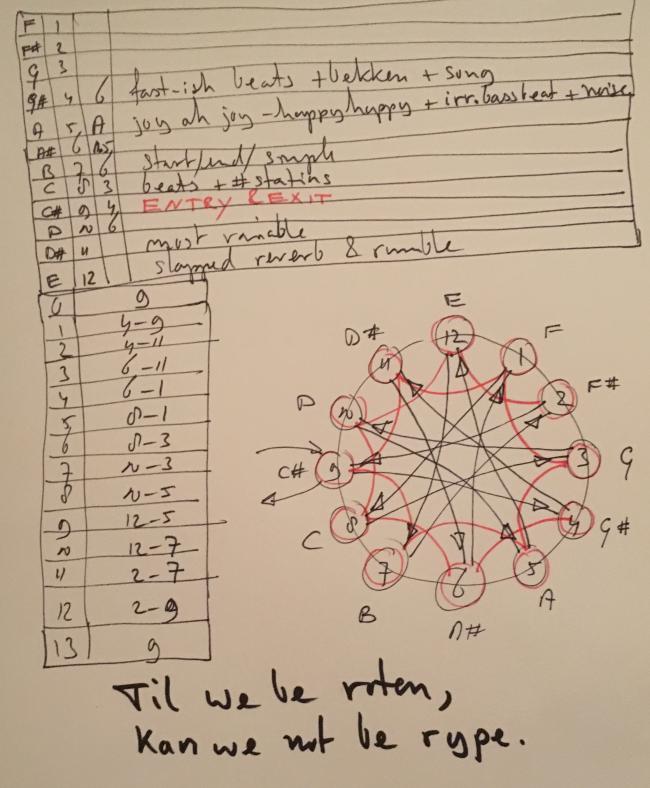 F 1
F# 2
G 3
G# 4 6 fast-ish beats + bekken + song
A 5 A joy ah joy - happyhappy + irr. bassbeat + noise
A# 6
B 7 6 start/end/simple
C 8 3 beats + # statins
C# 9 4 ENTRY & EXIT
D 10 6
D# 11 most variable
E 12 slapped reverb & rumble
0 9
1 4-9
2 4-11
3 6-11
4 6-1
5 8-1
6 8-3
7 10-3
8 10-5
9 12-5
10 12-7
11 2-7
12 2-9
13 9
E
D# F
12
11 1
D F#
10 2
C# 9 3 G
8 4 G#
C
7 6 5
B A# A
Til we be roten,
Kan we not be rype.